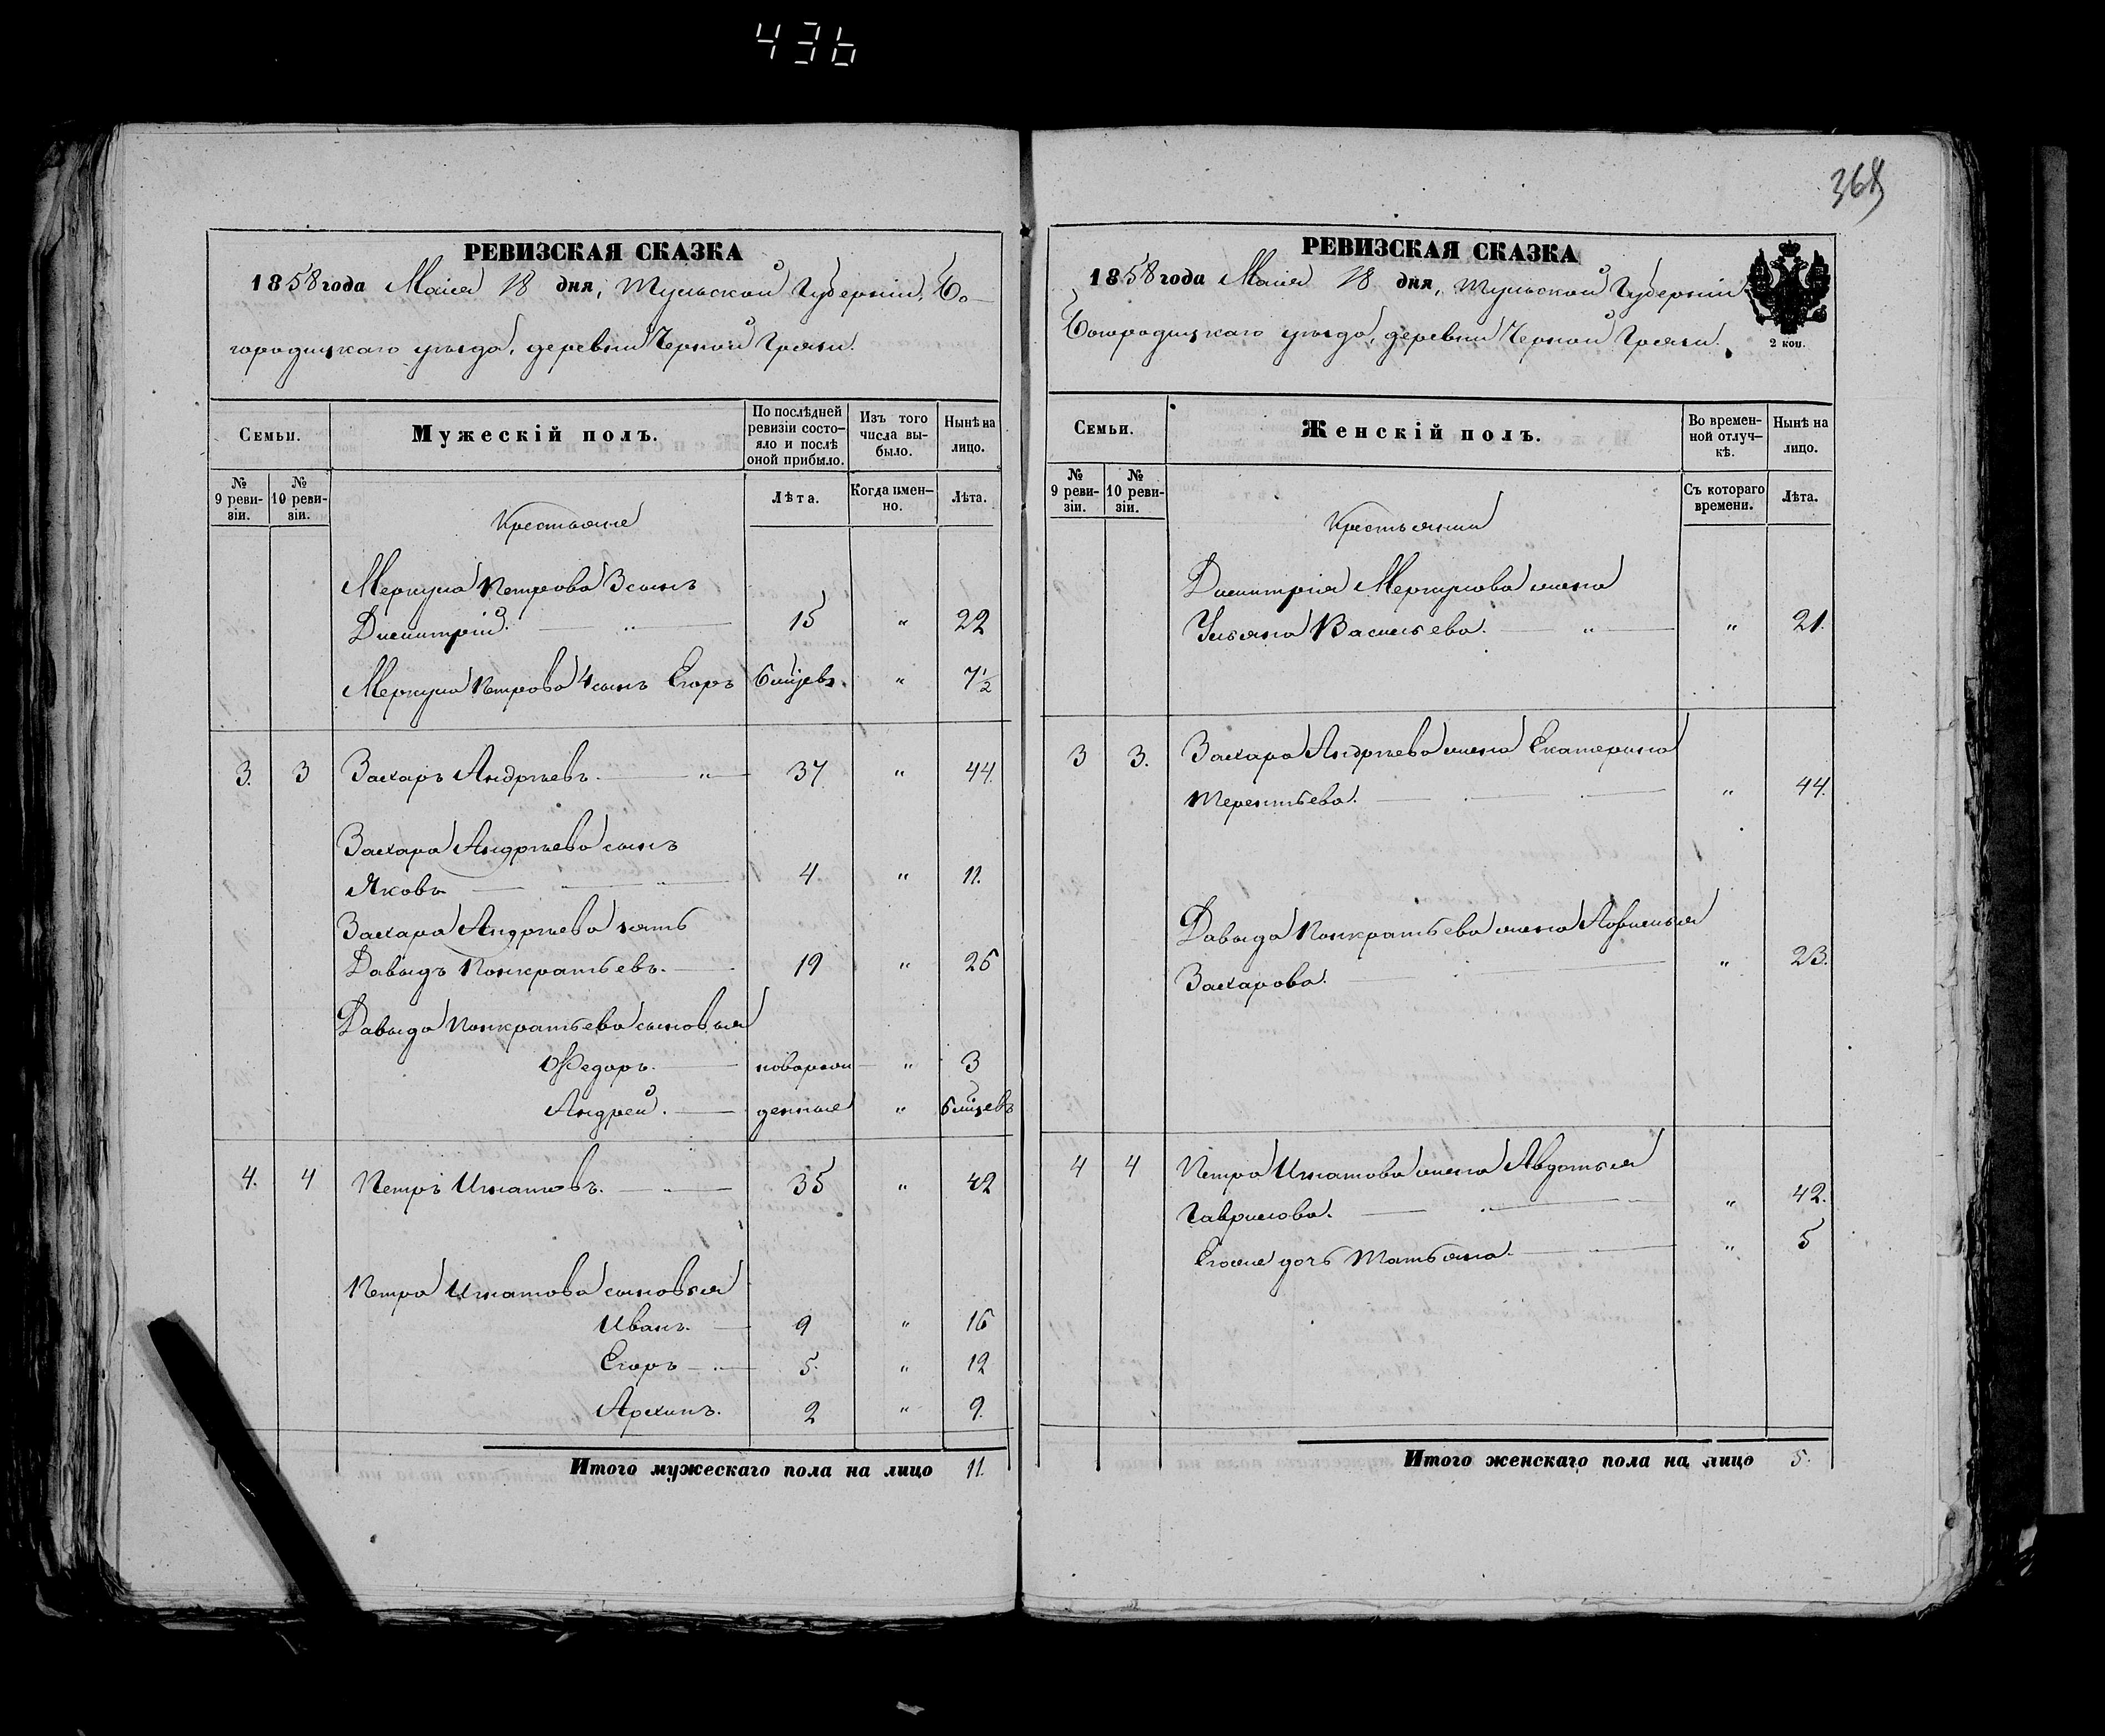 436
368
РЕВИЗСКАЯ СКАЗКА
1858 года Маія 18 дня, Тульской Губерніи, Бо-
городицкаго уѣзда, деревни Черной Грязи.
Семьи.
Мужескій полъ.
По послѣдней ревизіи состо-яло и послѣ оной прибыло.
Изъ того числа вы-было.
Нынѣ на лицо.
№ 9 реви-зіи.
№ 10 реви-зіи.
Лѣта.
Когда имен-но.
Лѣта.
Крестьяне
Меркула Петрова 3 сынъ
Димитрій. 15 " 22
Меркула Петрова 4 сынъ Егоръ 6 мѣцевъ. " 7 1/2
3. 3 Захаръ Андрѣевъ. " 37 " 44.
Захара Андрѣева сынъ
Яковъ 4 " 11.
Захара Андрѣева зять
Давыдъ Понкратьевъ. 19 " 26
Давыда Понкратьева сыновья
Ѳедоръ. новорож " 3
Андрей. денные " 6 мѣцевъ
4. 4 Петръ Игнатовъ. 35 " 42
Петра Игнатова сыновья
Иванъ. 9 " 16
Егоръ 5. " 12
Архипъ. 2 " 9.
Итого мужескаго пола на лицо 11.
РЕВИЗСКАЯ СКАЗКА
1858 года Маія 18 дня, Тульской Губерніи
Богородицкаго уѣзда, деревни Черной Грязи.
2 коп.
Семьи.
Женскій полъ.
Во времен-ной отлуч-кѣ.
Нынѣ на лицо.
№ 9 реви-зіи.
№ 10 реви-зіи.
Съ котораго времени.
Лѣта.
Крестьянки
Димитрія Меркулова жена
Ульяна Васильева. " 21.
3 3. Захара Андрѣева жена Екатерина
Терентьева. " 44.
Давыда Понкратьева жена
Захарова. " 23.
4 4 Петра Игнатова жена Авдотья
Гаврилова. " 42.
Егоже дочь Татьяна. " 5
Итого женскаго пола на лицо 5.